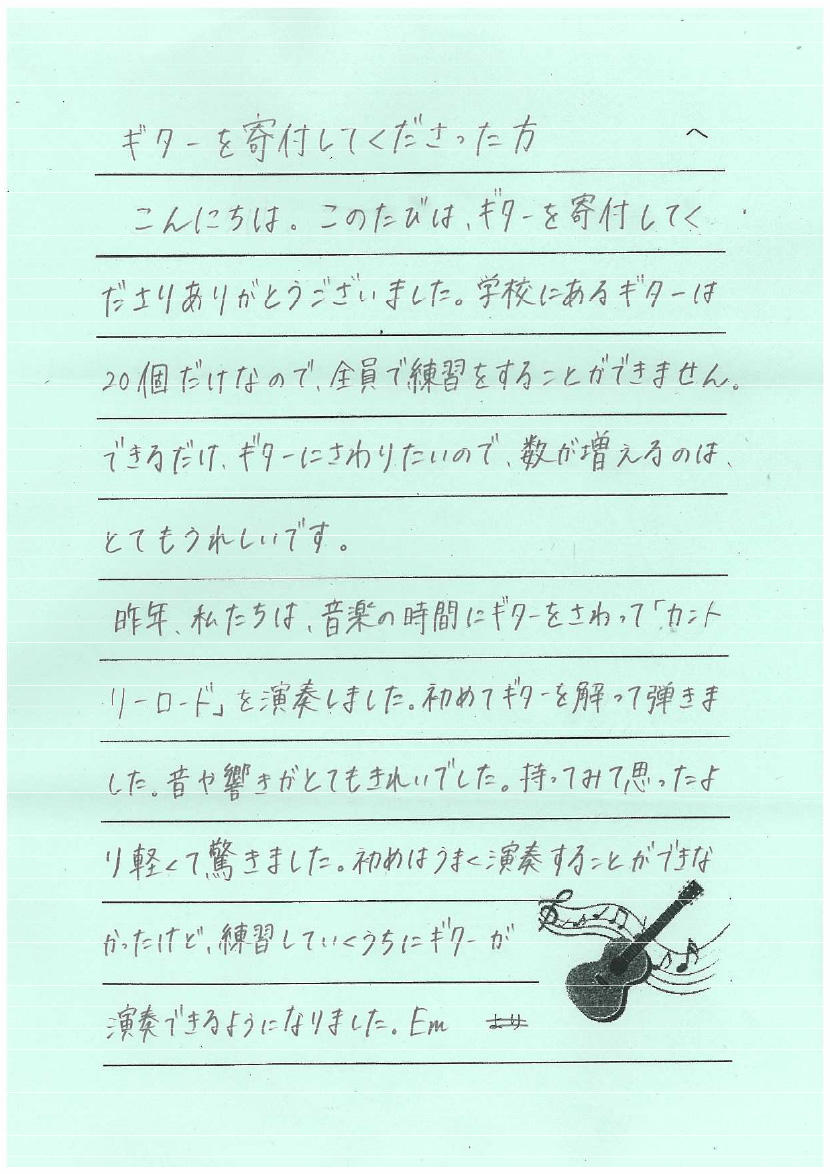 ギターを寄付してくださった方 へ
こんにちは。このたびは、ギターを寄付してく
ださりありがとうございました。学校にあるギターは
20個だけなので、全員で練習をすることができません。
できるだけ、ギターにさわりたいので、数が増えるのは、
とてもうれしいです。
昨年、私たちは、音楽の時間にギターをさわって「カント
リーロード」を演奏しました。初めてギターを解って弾きま
した。音や響きがとてもきれいでした。持ってみて思ったよ
り軽くて驚きました。初めはうまく演奏することができな
かったけど、練習していくうちにギターが
演奏できるようになりました。Em より